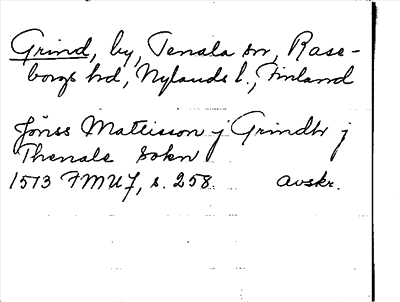 Grind, by, Tenala sn, Rase-
borgs hd, Nylands l., Finland
Jönss Matisson j Grindh j
Thenale sokn
1513 FMU 7, s. 258. avskr.